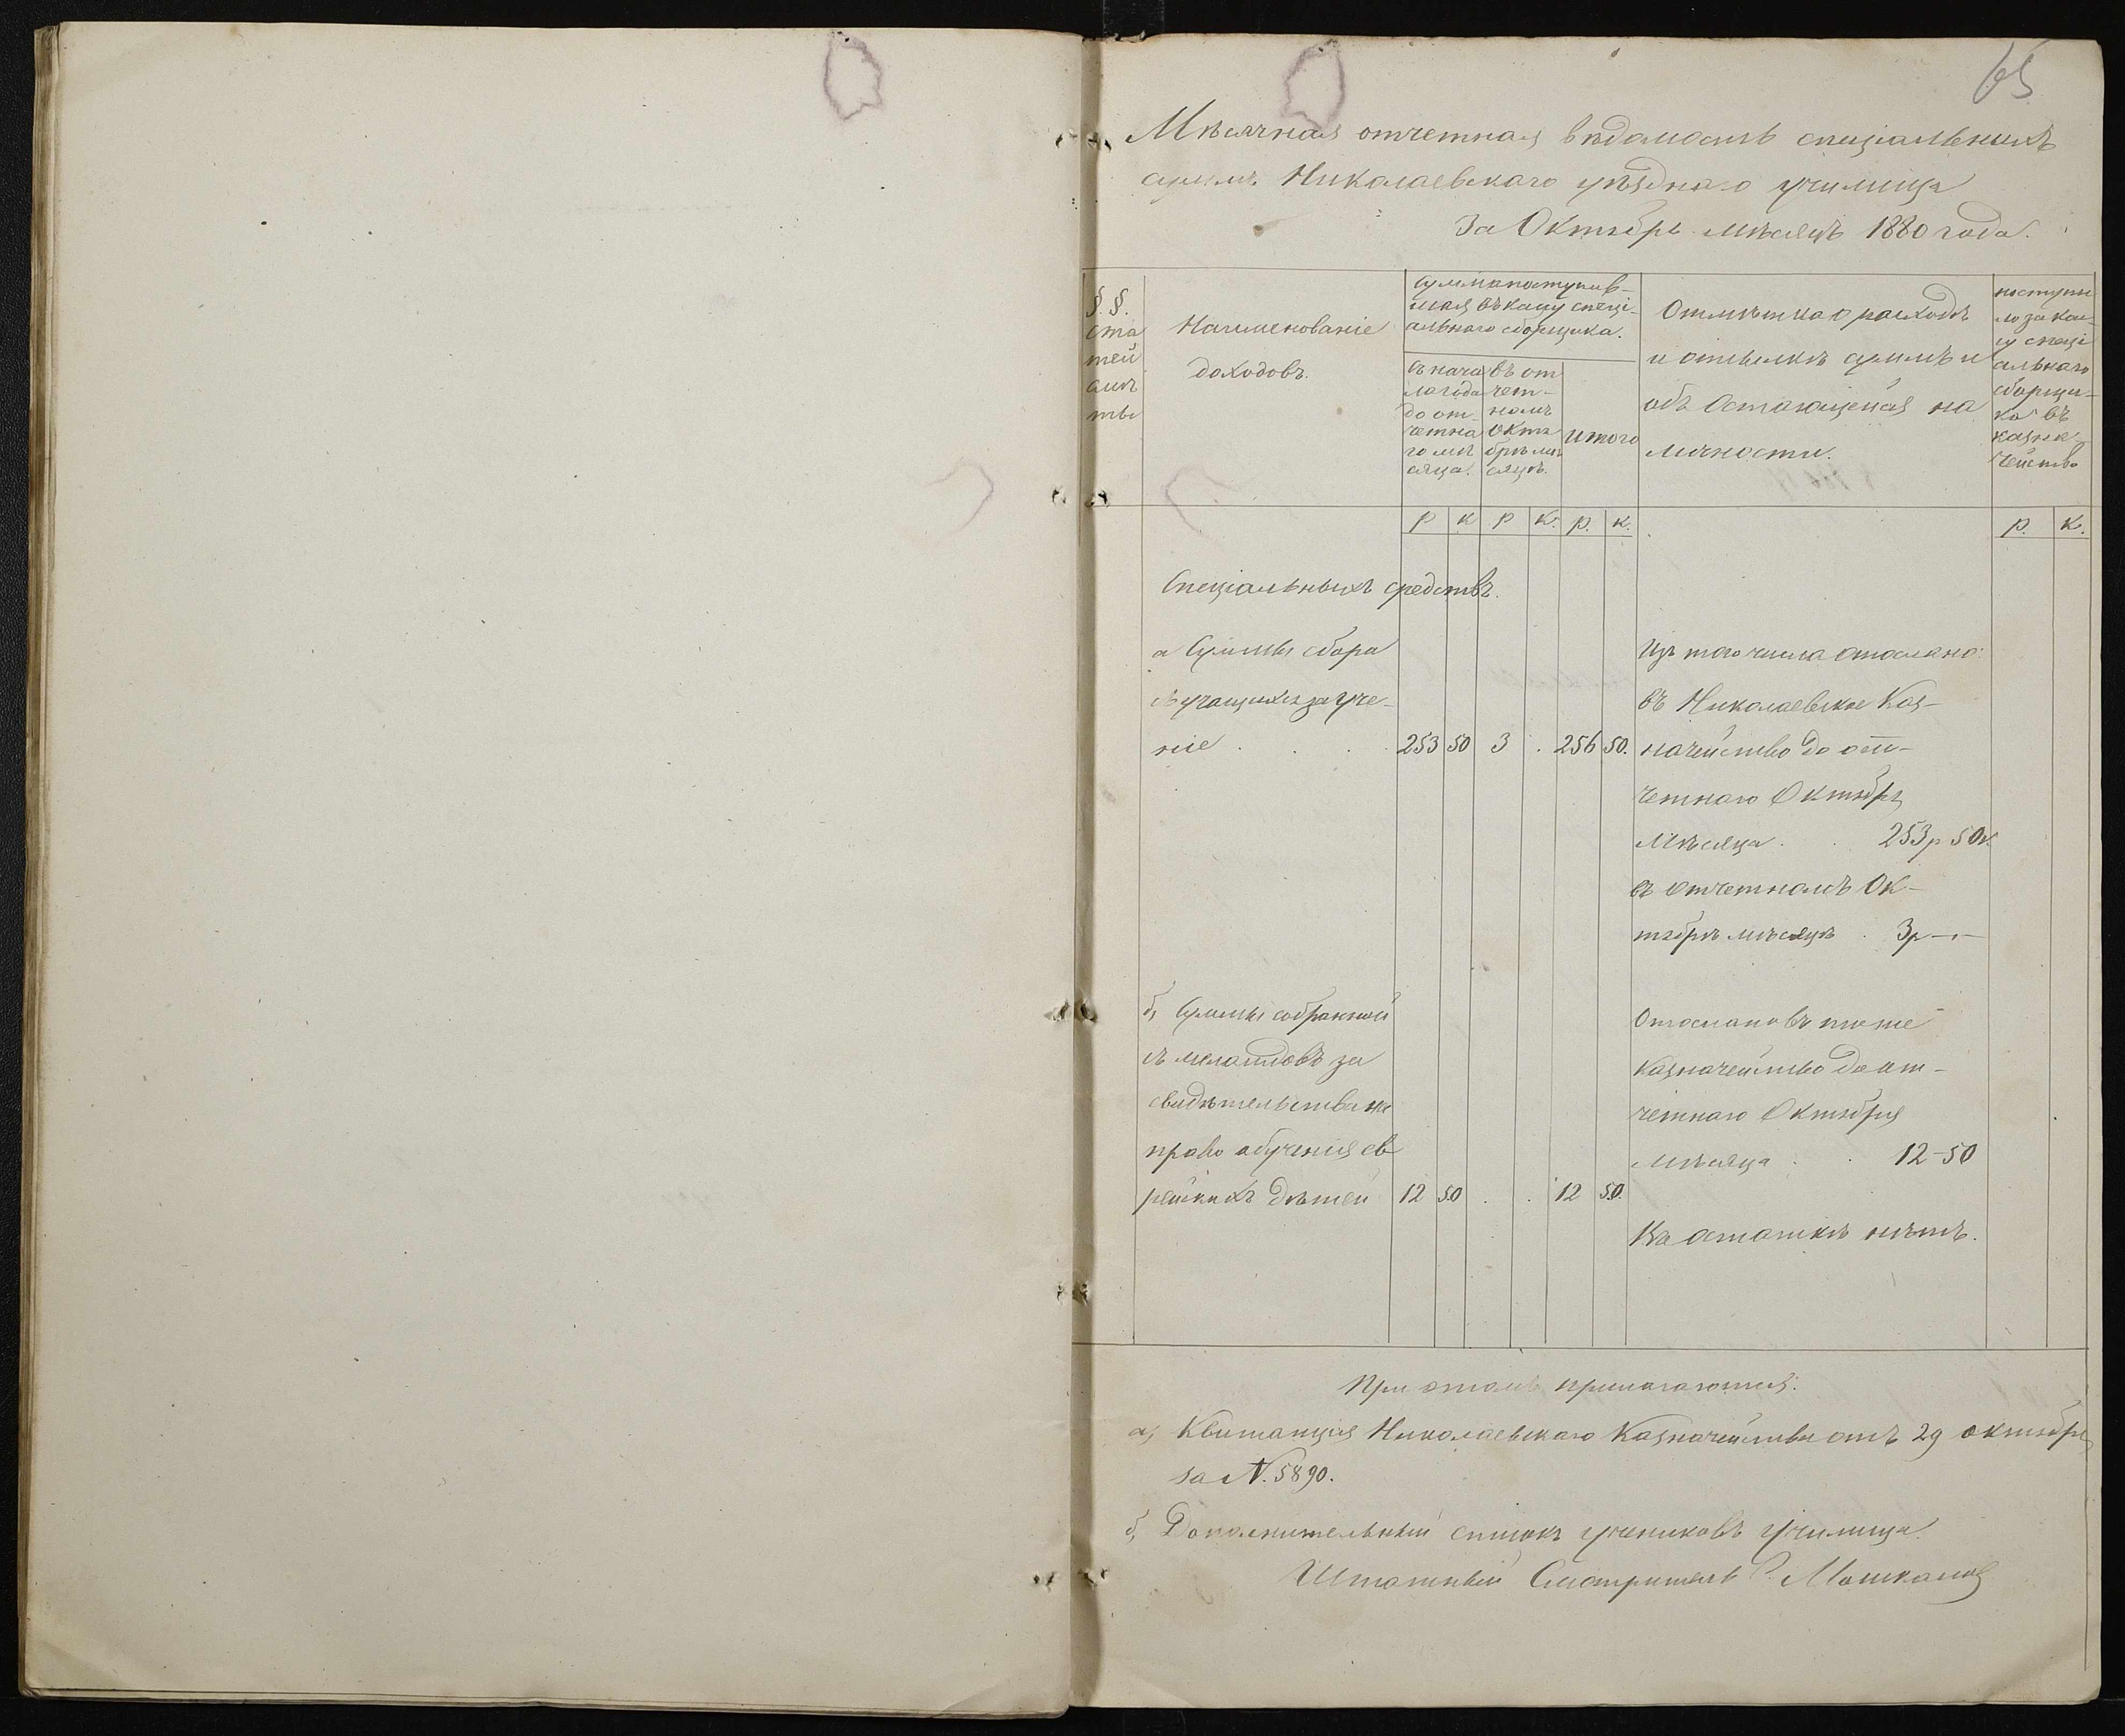 65
Мѣсячная отчетная вѣдомость спеціальныхъ
суммъ Николаевскаго уѣзднаго училища
За Октябрь мѣсяцъ 1880 года.
§.§.
ста
тей
смѣ
ты
Наименованіе
доходовъ.
Сумма поступив-
шая въ касу спеці-
альнаго сборщика.
съ нача
ла года
до от
четна
го мѣ
сяца.
въ от
чет-
номъ
октя
брѣ мѣ
сяцѣ.
итого
Отмѣтка о расходѣ
и отсылкѣ суммъ и
объ остающейся на
личности.
поступи
ло за кас
су спеці
альнаго
сборщи-
ка въ
казна-
чейство
р к р к. р. к. р. к.
Спеціальныхъ средствъ.
а Суммы сбора
съ учащихся за уче-
ніе . . . 253 50 3 . 256 50.
Изъ того числа отослано:
въ Николаевское Каз-
начейство до от-
четнаго Октября
мѣсяца . . 253р 50к.
въ отчетномъ Ок-
тябрѣ мѣсяцѣ . 3р -„-
б, Суммы собранной
съ меламдовъ за
свидѣтельства на
право обученія ев
рейскихъ дѣтей 12 50 . . 12 50.
Отослано въ тоже
казначейство до от-
четнаго Октября
мѣсяца . . 12-50
Въ остаткѣ нѣтъ.
При этомъ прилагаются:
а, Квитанція Николаевскаго Казначейства отъ 29 октября
за N. 5890.
б, Дополнительный списокъ учениковъ училища.
Штатный Смотритель